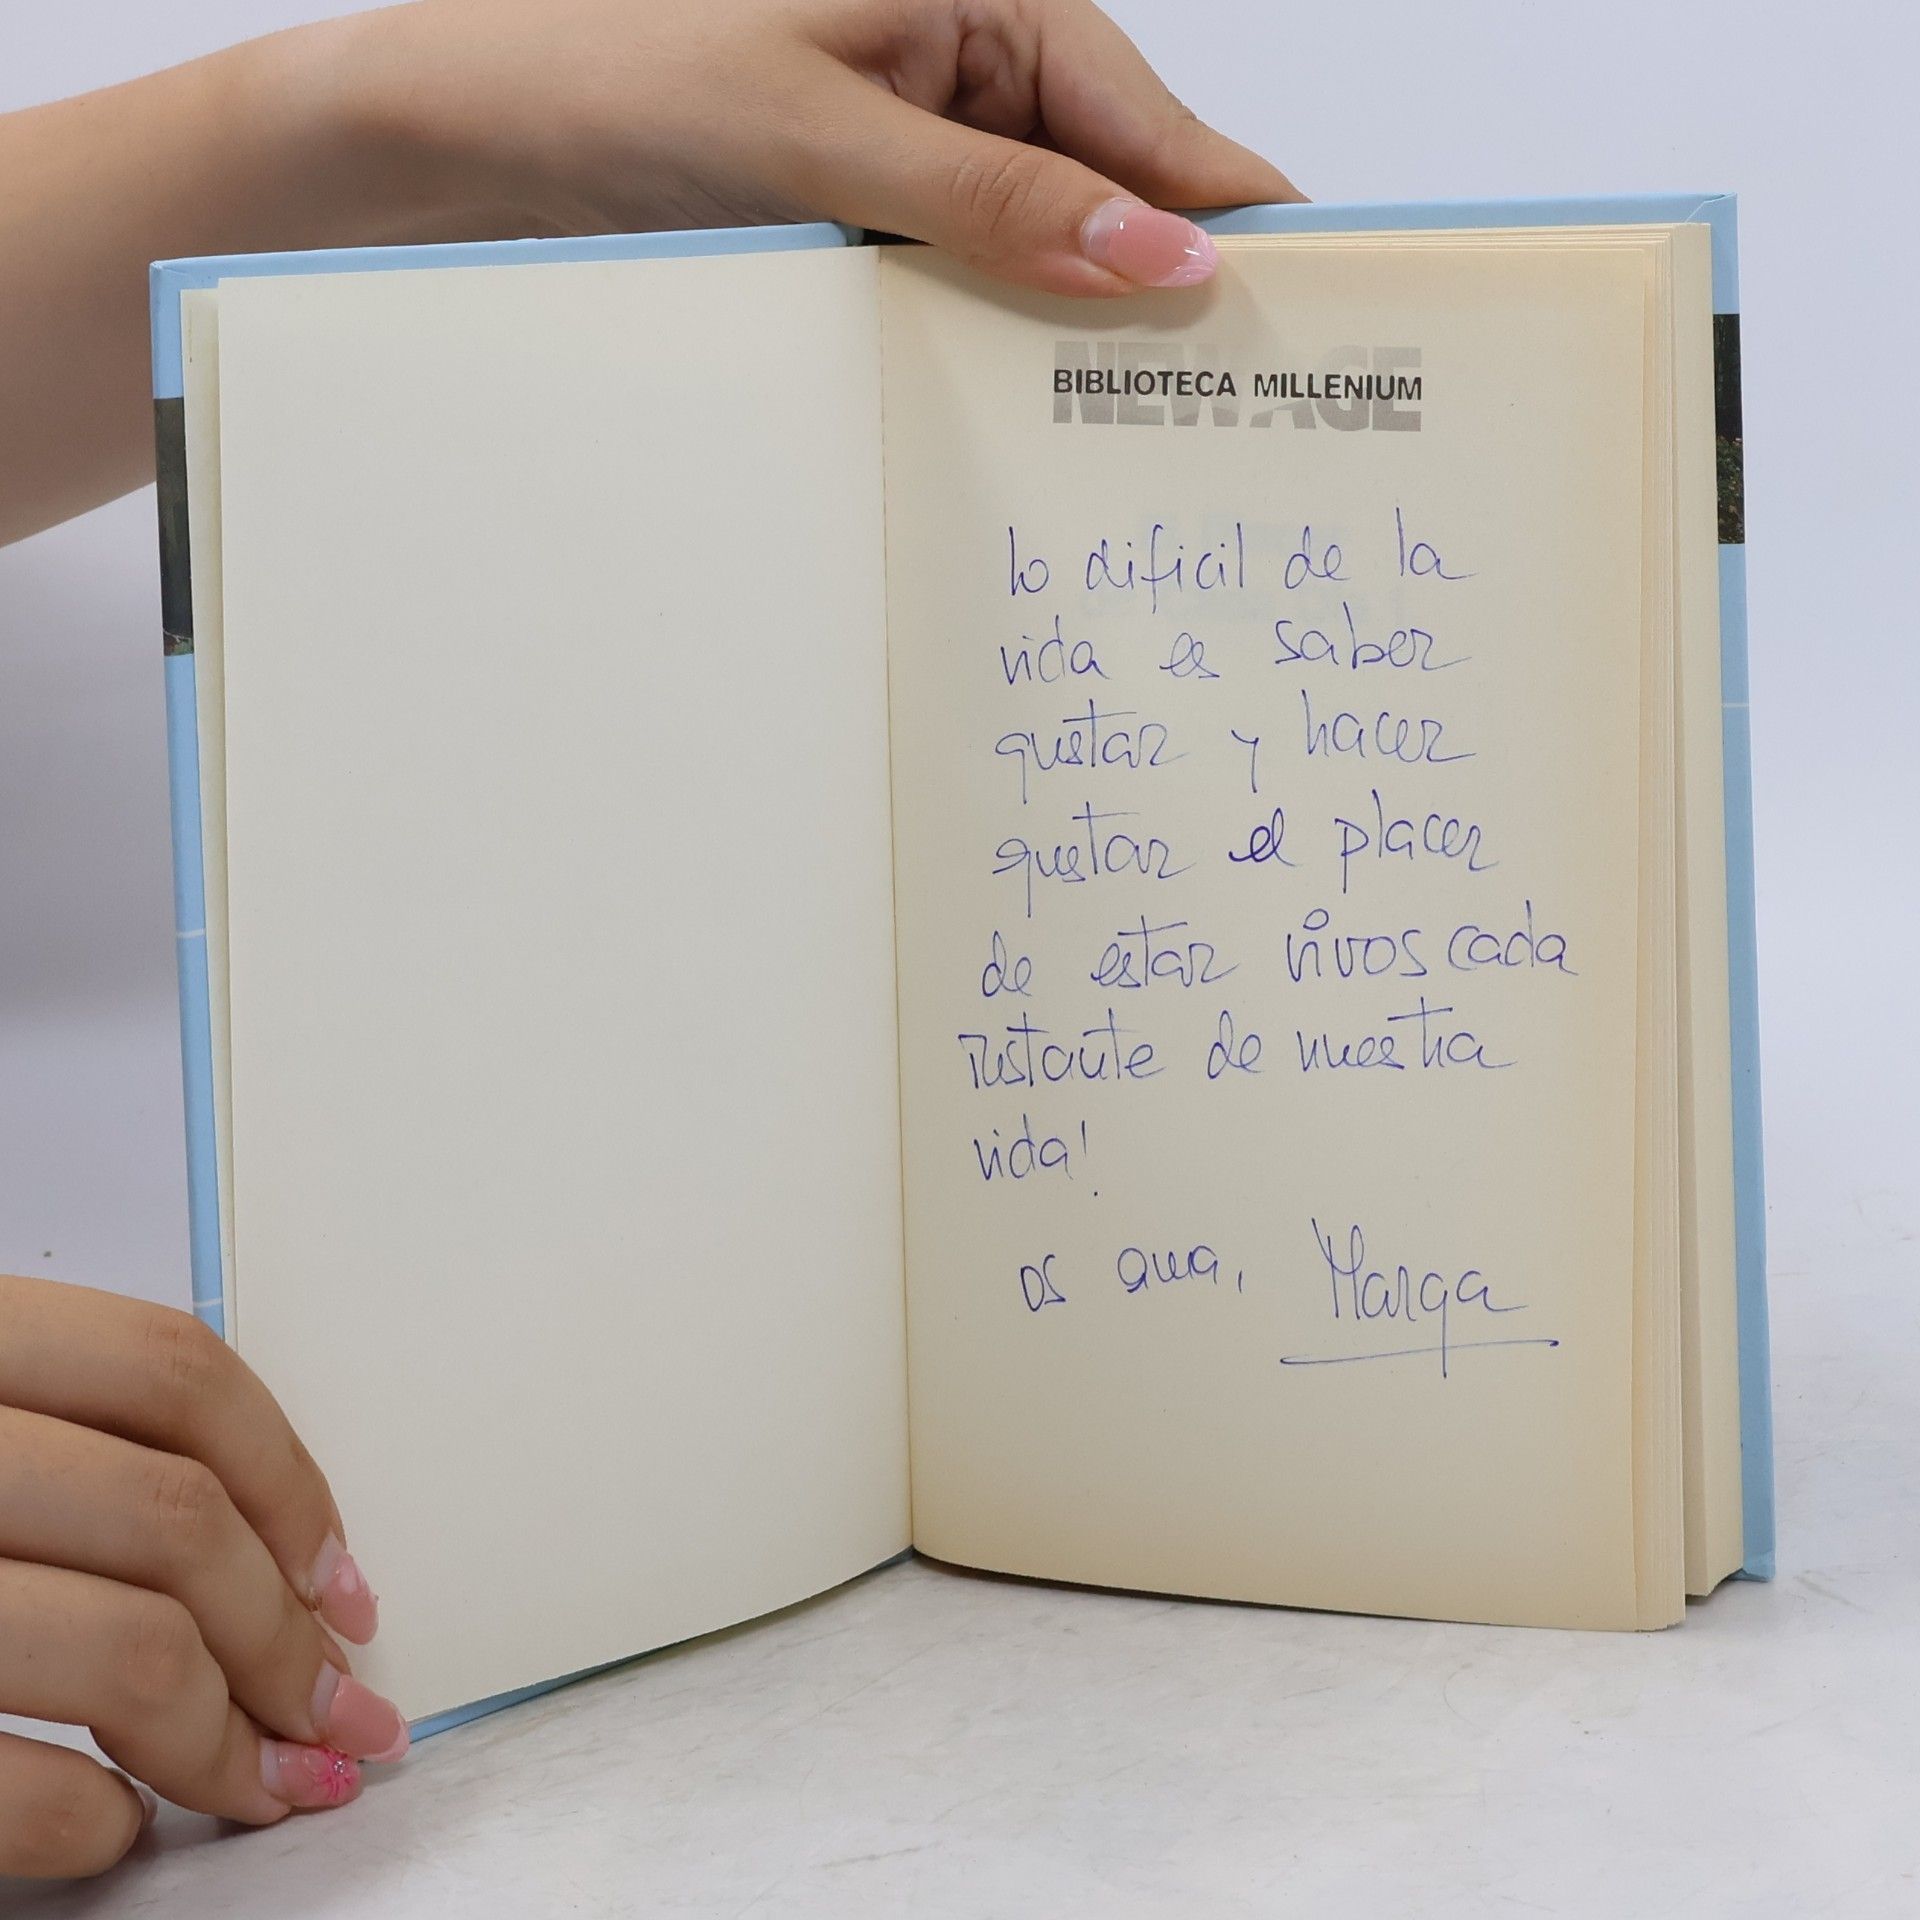 NEW AGE
BIBLIOTECA MILLENIUM
lo dificil de la
vida es saber
gustar y hacer
gustar el placer
de estar vivos cada
instante de nuestra
vida!
os ama, Marga